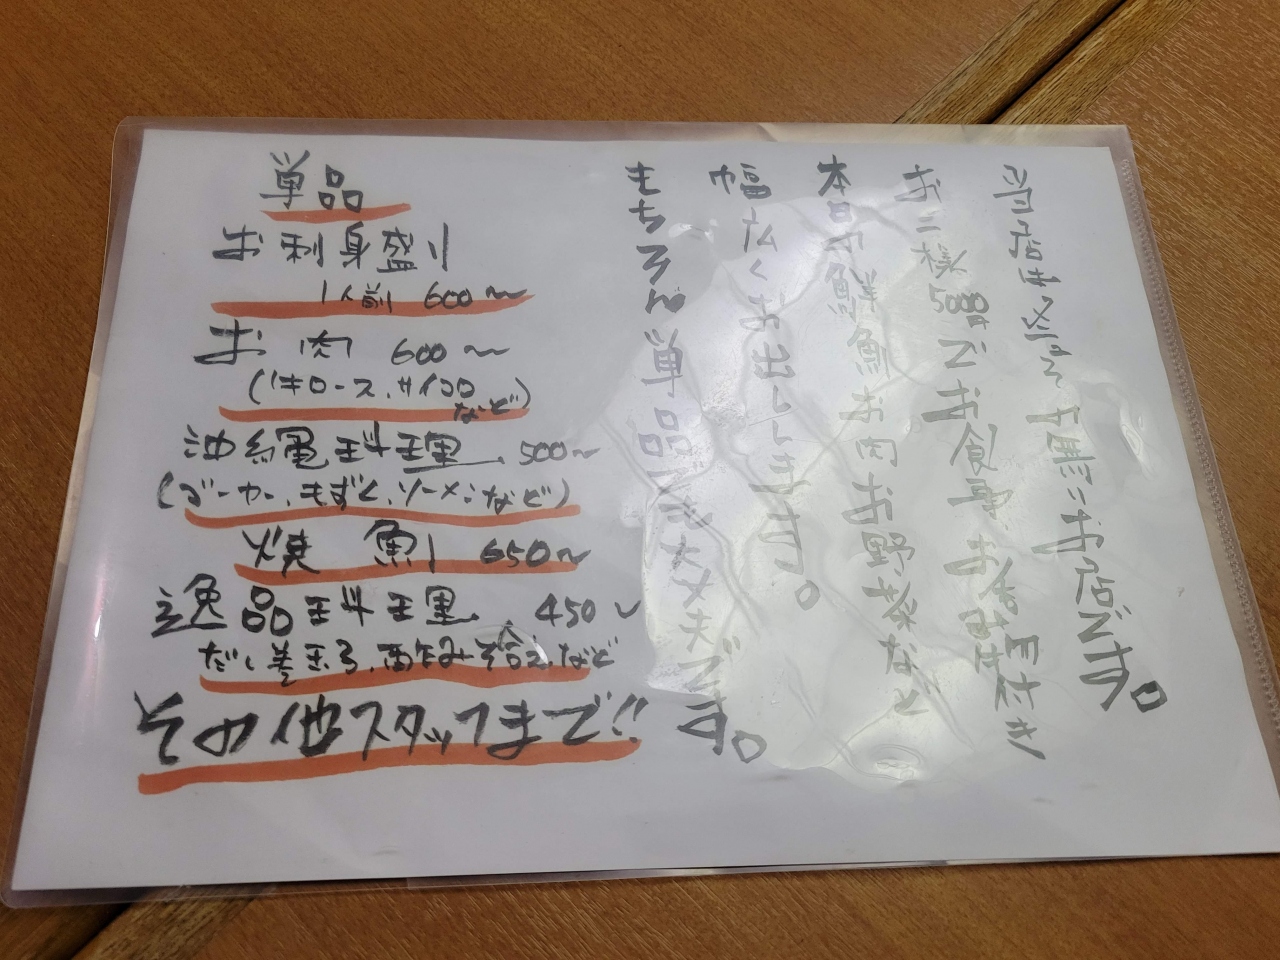 当店は全てお任せのお店です。
お一人様5000円でお食事お酒付き
本日の鮮魚お肉お野菜など
幅広くお出しします。
もちろん単品でも大丈夫です。
単品
お刺身盛り
1人前 600〜
お肉 600〜
(牛ロース、サイコロ
など)
沖縄料理 500〜
(ゴーヤー、もずく、ソーメンなど)
焼魚 650〜
逸品料理 450〜
だし巻き、和えなど
その他スタッフまで!!